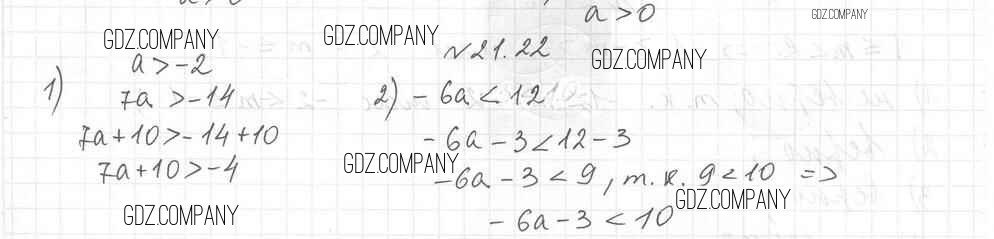 a > 0
GDZ.COMPANY
GDZ.COMPANY
GDZ.COMPANY
№21.22
GDZ.COMPANY
1) a > -2
7a > -14
7a + 10 > -14 + 10
7a + 10 > -4
2) -6a < 12
-6a - 3 < 12 - 3
-6a - 3 < 9, т.к. 9 < 10 =>
-6a - 3 < 10
GDZ.COMPANY
GDZ.COMPANY
GDZ.COMPANY